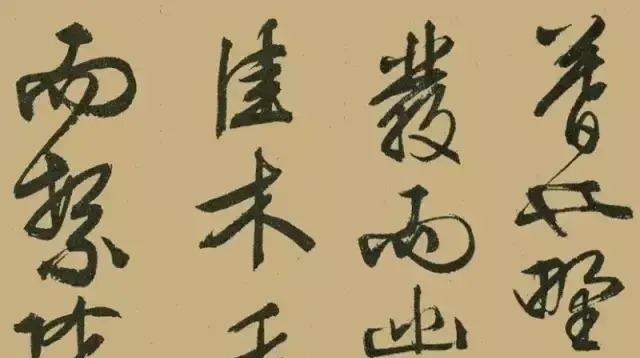 暮也野
發而幽
佳木
而繁